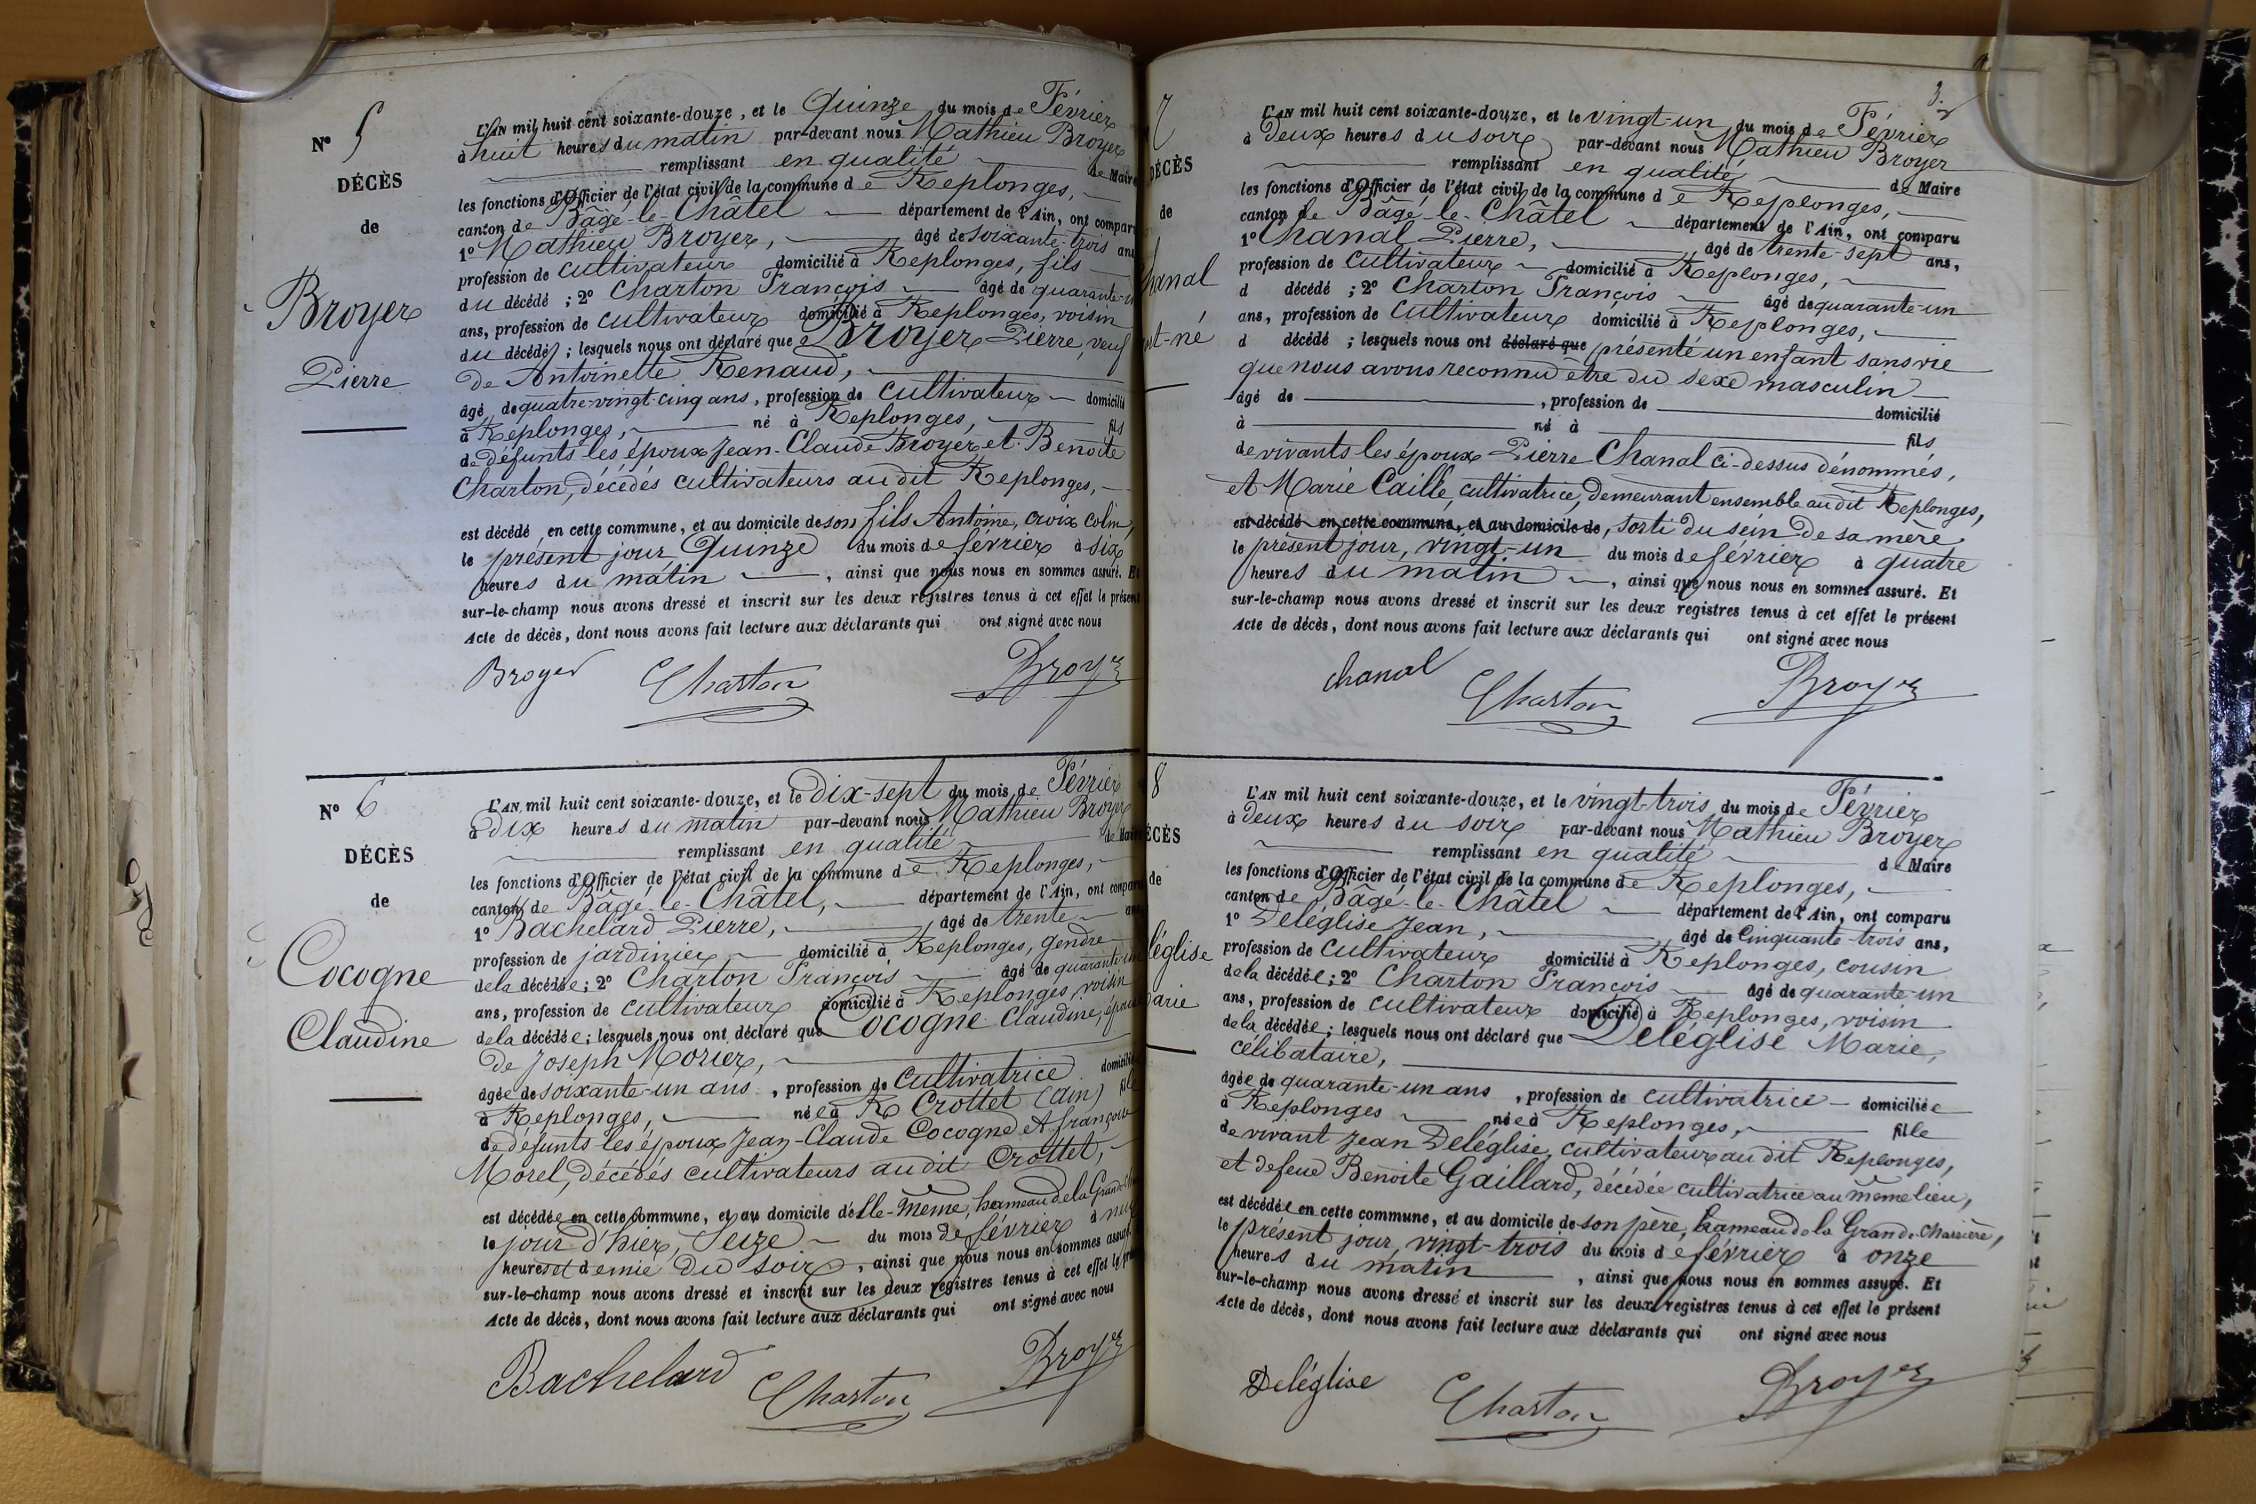 N° 5
DÉCÈS
de
Broyer
Pierre
L'AN mil huit cent soixante-douze, et le Quinze du mois de Février
à huit heures du matin par-devant nous Mathieu Broyer
remplissant en qualité de Maire
les fonctions d'Officier de l'état civil de la commune de Replonges,
canton de Bâgé-le-Châtel département de l'Ain, ont comparu
1° Mathieu Broyer, âgé de soixante-trois ans
profession de cultivateur domicilié à Replonges, fils
du décédé ; 2° Charton François âgé de quarante-un
ans, profession de cultivateur domicilié à Replonges, voisin
du décédé ; lesquels nous ont déclaré que Broyer Pierre, veuf
de Antoinette Renaud,
âgé de quatre-vingt-cinq ans, profession de cultivateur domicilié
à Replonges, né à Replonges, fils
de défunts les époux Jean-Claude Broyer et Benoite
Charton, décédés cultivateurs au dit Replonges,
est décédé en cette commune, et au domicile de son fils Antoine, croix colin,
le présent jour Quinze du mois de février à six
heures du matin, ainsi que nous nous en sommes assuré. Et
sur-le-champ nous avons dressé et inscrit sur les deux registres tenus à cet effet le présent
Acte de décès, dont nous avons fait lecture aux déclarants qui ont signé avec nous
Broyer Charton Broyer
N° 6
DÉCÈS
de
Cocogne
Claudine
L'AN mil huit cent soixante-douze, et le dix-sept du mois de Février
à dix heures du matin par-devant nous Mathieu Broyer
remplissant en qualité de Maire
les fonctions d'Officier de l'état civil de la commune de Replonges,
canton de Bâgé-le-Châtel, département de l'Ain, ont comparu
1° Bachelard Pierre, âgé de trente ans
profession de jardinier domicilié à Replonges, gendre
de la décédée ; 2° Charton François âgé de quarante-un
ans, profession de cultivateur domicilié à Replonges, voisin
de la décédée ; lesquels nous ont déclaré que Cocogne Claudine, épouse
de Joseph Morier,
âgée de soixante-un ans, profession de cultivatrice domicilié
à Replonges, née à R Crottet (Ain) fille
de défunts les époux Jean-Claude Cocogne et françoise
Morel, décédés cultivateurs au dit Crottet,
est décédée en cette commune, et au domicile d'elle-même, hameau de la Grande
le jour d'hier, Seize du mois de février à neuf
heures et demie du soir, ainsi que nous nous en sommes assuré.
sur-le-champ nous avons dressé et inscrit sur les deux registres tenus à cet effet le présent
Acte de décès, dont nous avons fait lecture aux déclarants qui ont signé avec nous
Bachelard Charton Broyer
3.
7
DÉCÈS
de
hanal
rt-né
L'AN mil huit cent soixante-douze, et le vingt-un du mois de Février
à deux heures du soir par-devant nous Mathieu Broyer
remplissant en qualité de Maire
les fonctions d'Officier de l'état civil de la commune de Replonges,
canton de Bâgé-le-Châtel département de l'Ain, ont comparu
1° Chanal Pierre, âgé de trente-sept ans,
profession de cultivateur domicilié à Replonges,
d décédé ; 2° Charton François âgé de quarante-un
ans, profession de cultivateur domicilié à Replonges,
d décédé ; lesquels nous ont déclaré que présenté un enfant sans vie
que nous avons reconnu être du sexe masculin
âgé de , profession de domicilié
à né à fils
de vivants les époux Pierre Chanal ci-dessus dénommés,
et Marie Caille, cultivatrice, demeurant ensemble au dit Replonges,
est décédé en cette commune, et au domicile de, sorti du sein de sa mère
le présent jour, vingt-un du mois de février à quatre
heures du matin, ainsi que nous nous en sommes assuré. Et
sur-le-champ nous avons dressé et inscrit sur les deux registres tenus à cet effet le présent
Acte de décès, dont nous avons fait lecture aux déclarants qui ont signé avec nous
Chanal Charton Broyer
8
DÉCÈS
de
léglise
arie
L'AN mil huit cent soixante-douze, et le vingt-trois du mois de Février
à deux heures du soir par-devant nous Mathieu Broyer
remplissant en qualité d Maire
les fonctions d'Officier de l'état civil de la commune de Replonges,
canton de Bâgé-le-Châtel département de l'Ain, ont comparu
1° Deléglise Jean, âgé de Cinquante-trois ans,
profession de cultivateur domicilié à Replonges, cousin
de la décédée ; 2° Charton François âgé de quarante-un
ans, profession de cultivateur domicilié à Replonges, voisin
de la décédée ; lesquels nous ont déclaré que Deléglise Marie,
célibataire,
âgée de quarante-un ans, profession de cultivatrice domiciliée
à Replonges née à Replonges, fille
de vivant Jean Deléglise, cultivateur au dit Replonges,
et de feue Benoite Gaillard, décédée cultivatrice au même lieu,
est décédée en cette commune, et au domicile de son père, hameau de la Grande Charrière,
le présent jour, vingt-trois du mois de février à onze
heures du matin, ainsi que nous nous en sommes assuré. Et
sur-le-champ nous avons dressé et inscrit sur les deux registres tenus à cet effet le présent
Acte de décès, dont nous avons fait lecture aux déclarants qui ont signé avec nous
Deléglise Charton Broyer